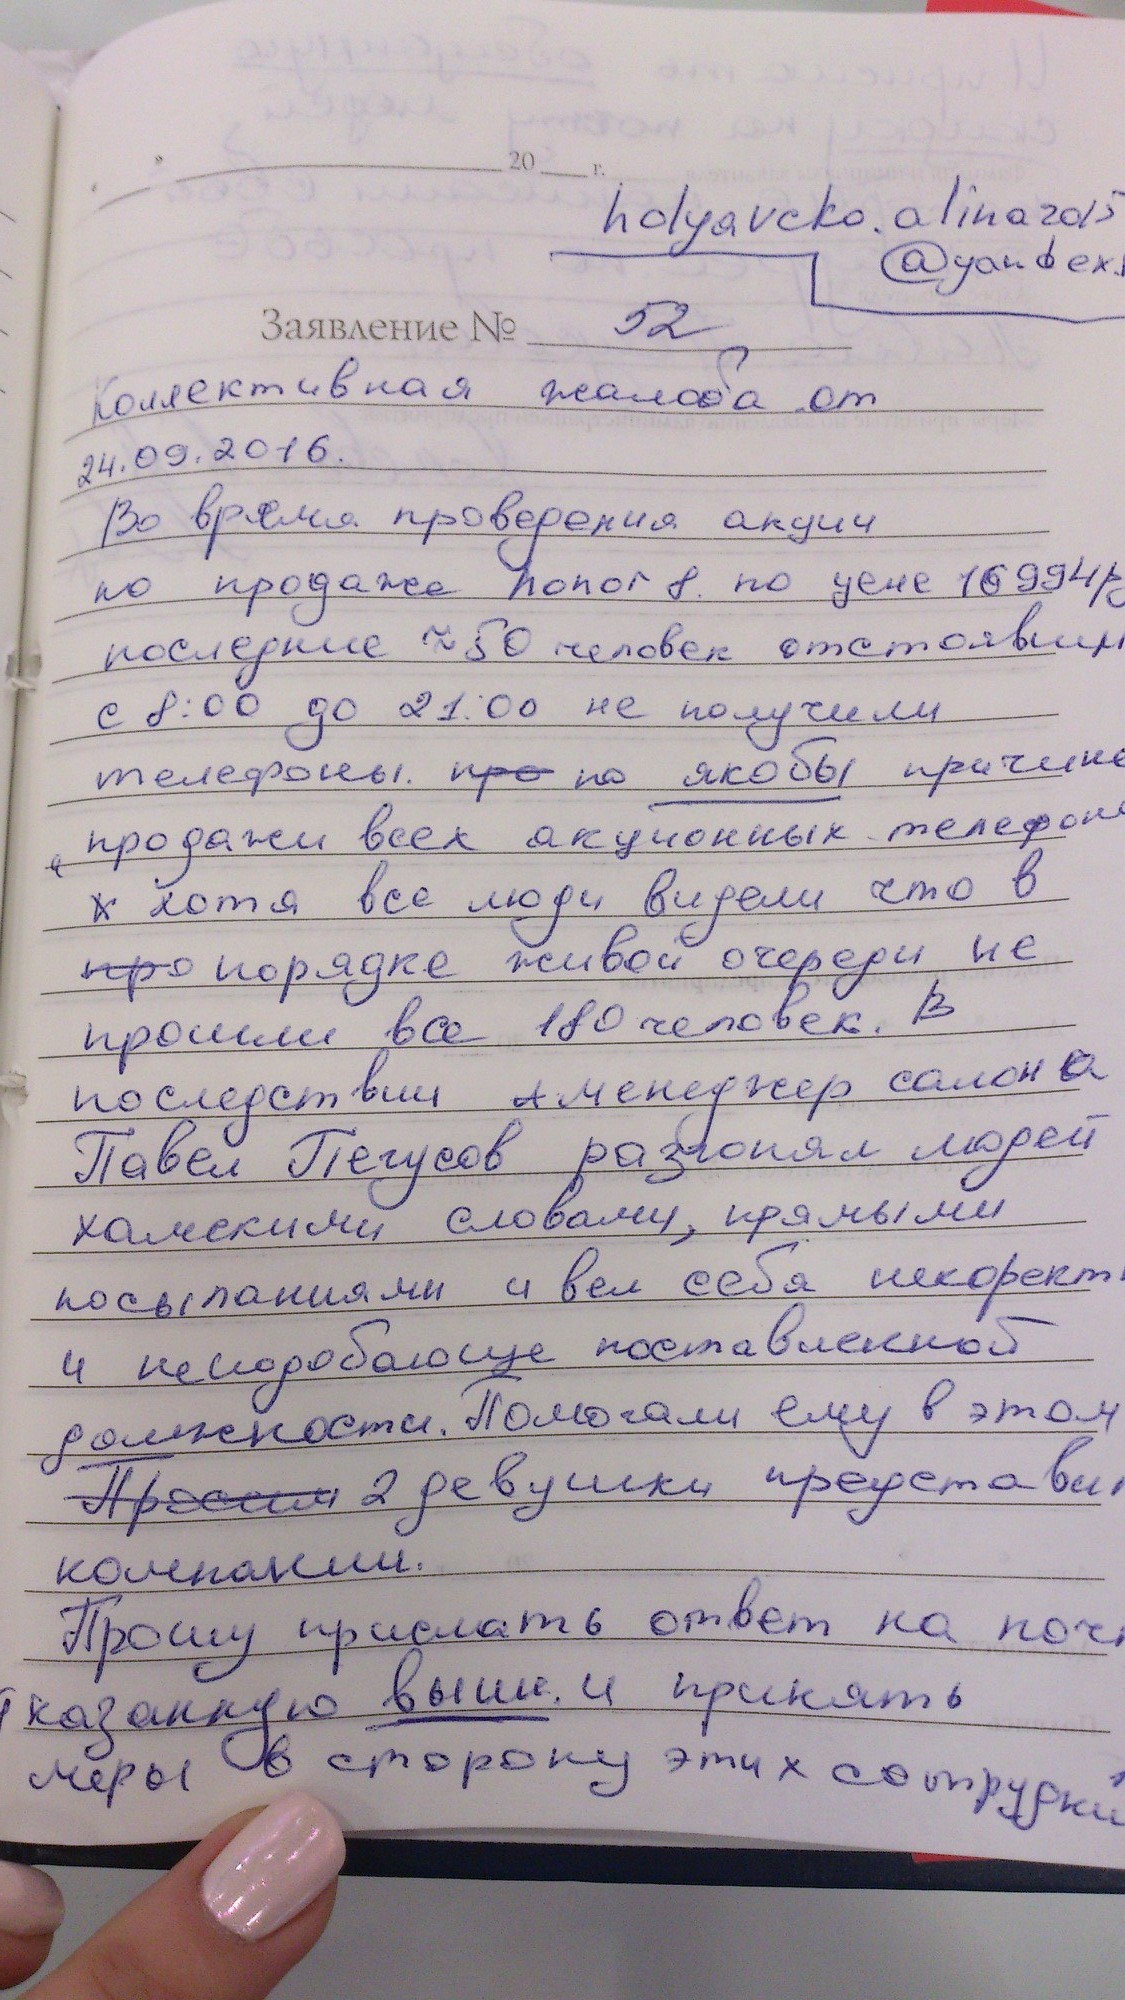 " 20 г.
holyavcko.alina2015
@yandex.
Заявление № 52
Коллективная жалоба от
24.09.2016.
Во время проведения акции
по продаже honor 8. по цене 16994р
последние ≈50 человек отстоявши
с 8:00 до 21:00 не получили
телефоны. про по якобы причине
продажи всех акционных телефоно
х хотя все люди видели что в
про порядке живой очереди не
прошли все 180 человек. В
последствии менеджер салона
Павел Пегусов разгонял людей
хамскими словами, прямыми
посыланиями и вел себя некоректн
и неподобающе поставленной
должности. Помогали ему в этом
Просим 2 девушки представи
компании.
Прошу прислать ответ на почт
указанную выше. и принять
меры в сторону этих сотрудни